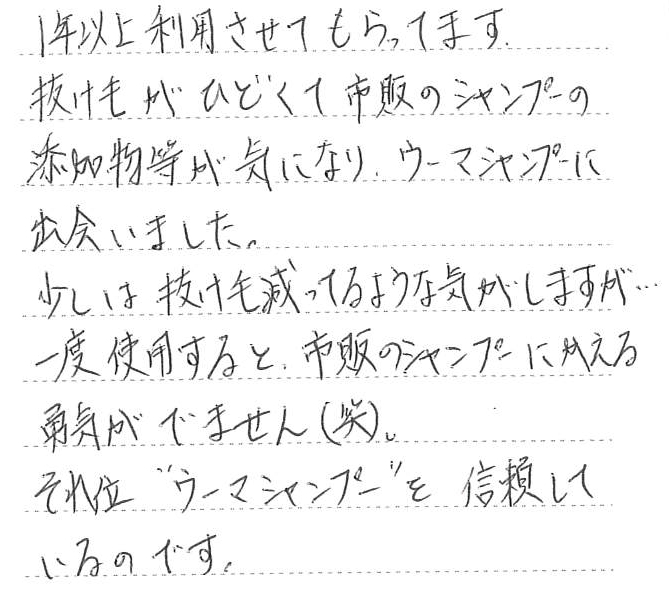 1年以上利用させてもらってます.
抜け毛がひどくて市販のシャンプーの
添加物等が気になり、ウーマシャンプーに
出会いました。
少しは抜け毛減ってるような気がしますが…
一度使用すると、市販のシャンプーにかえる
勇気がでません(笑)。
それ位"ウーマシャンプー"を信頼して
いるのです。